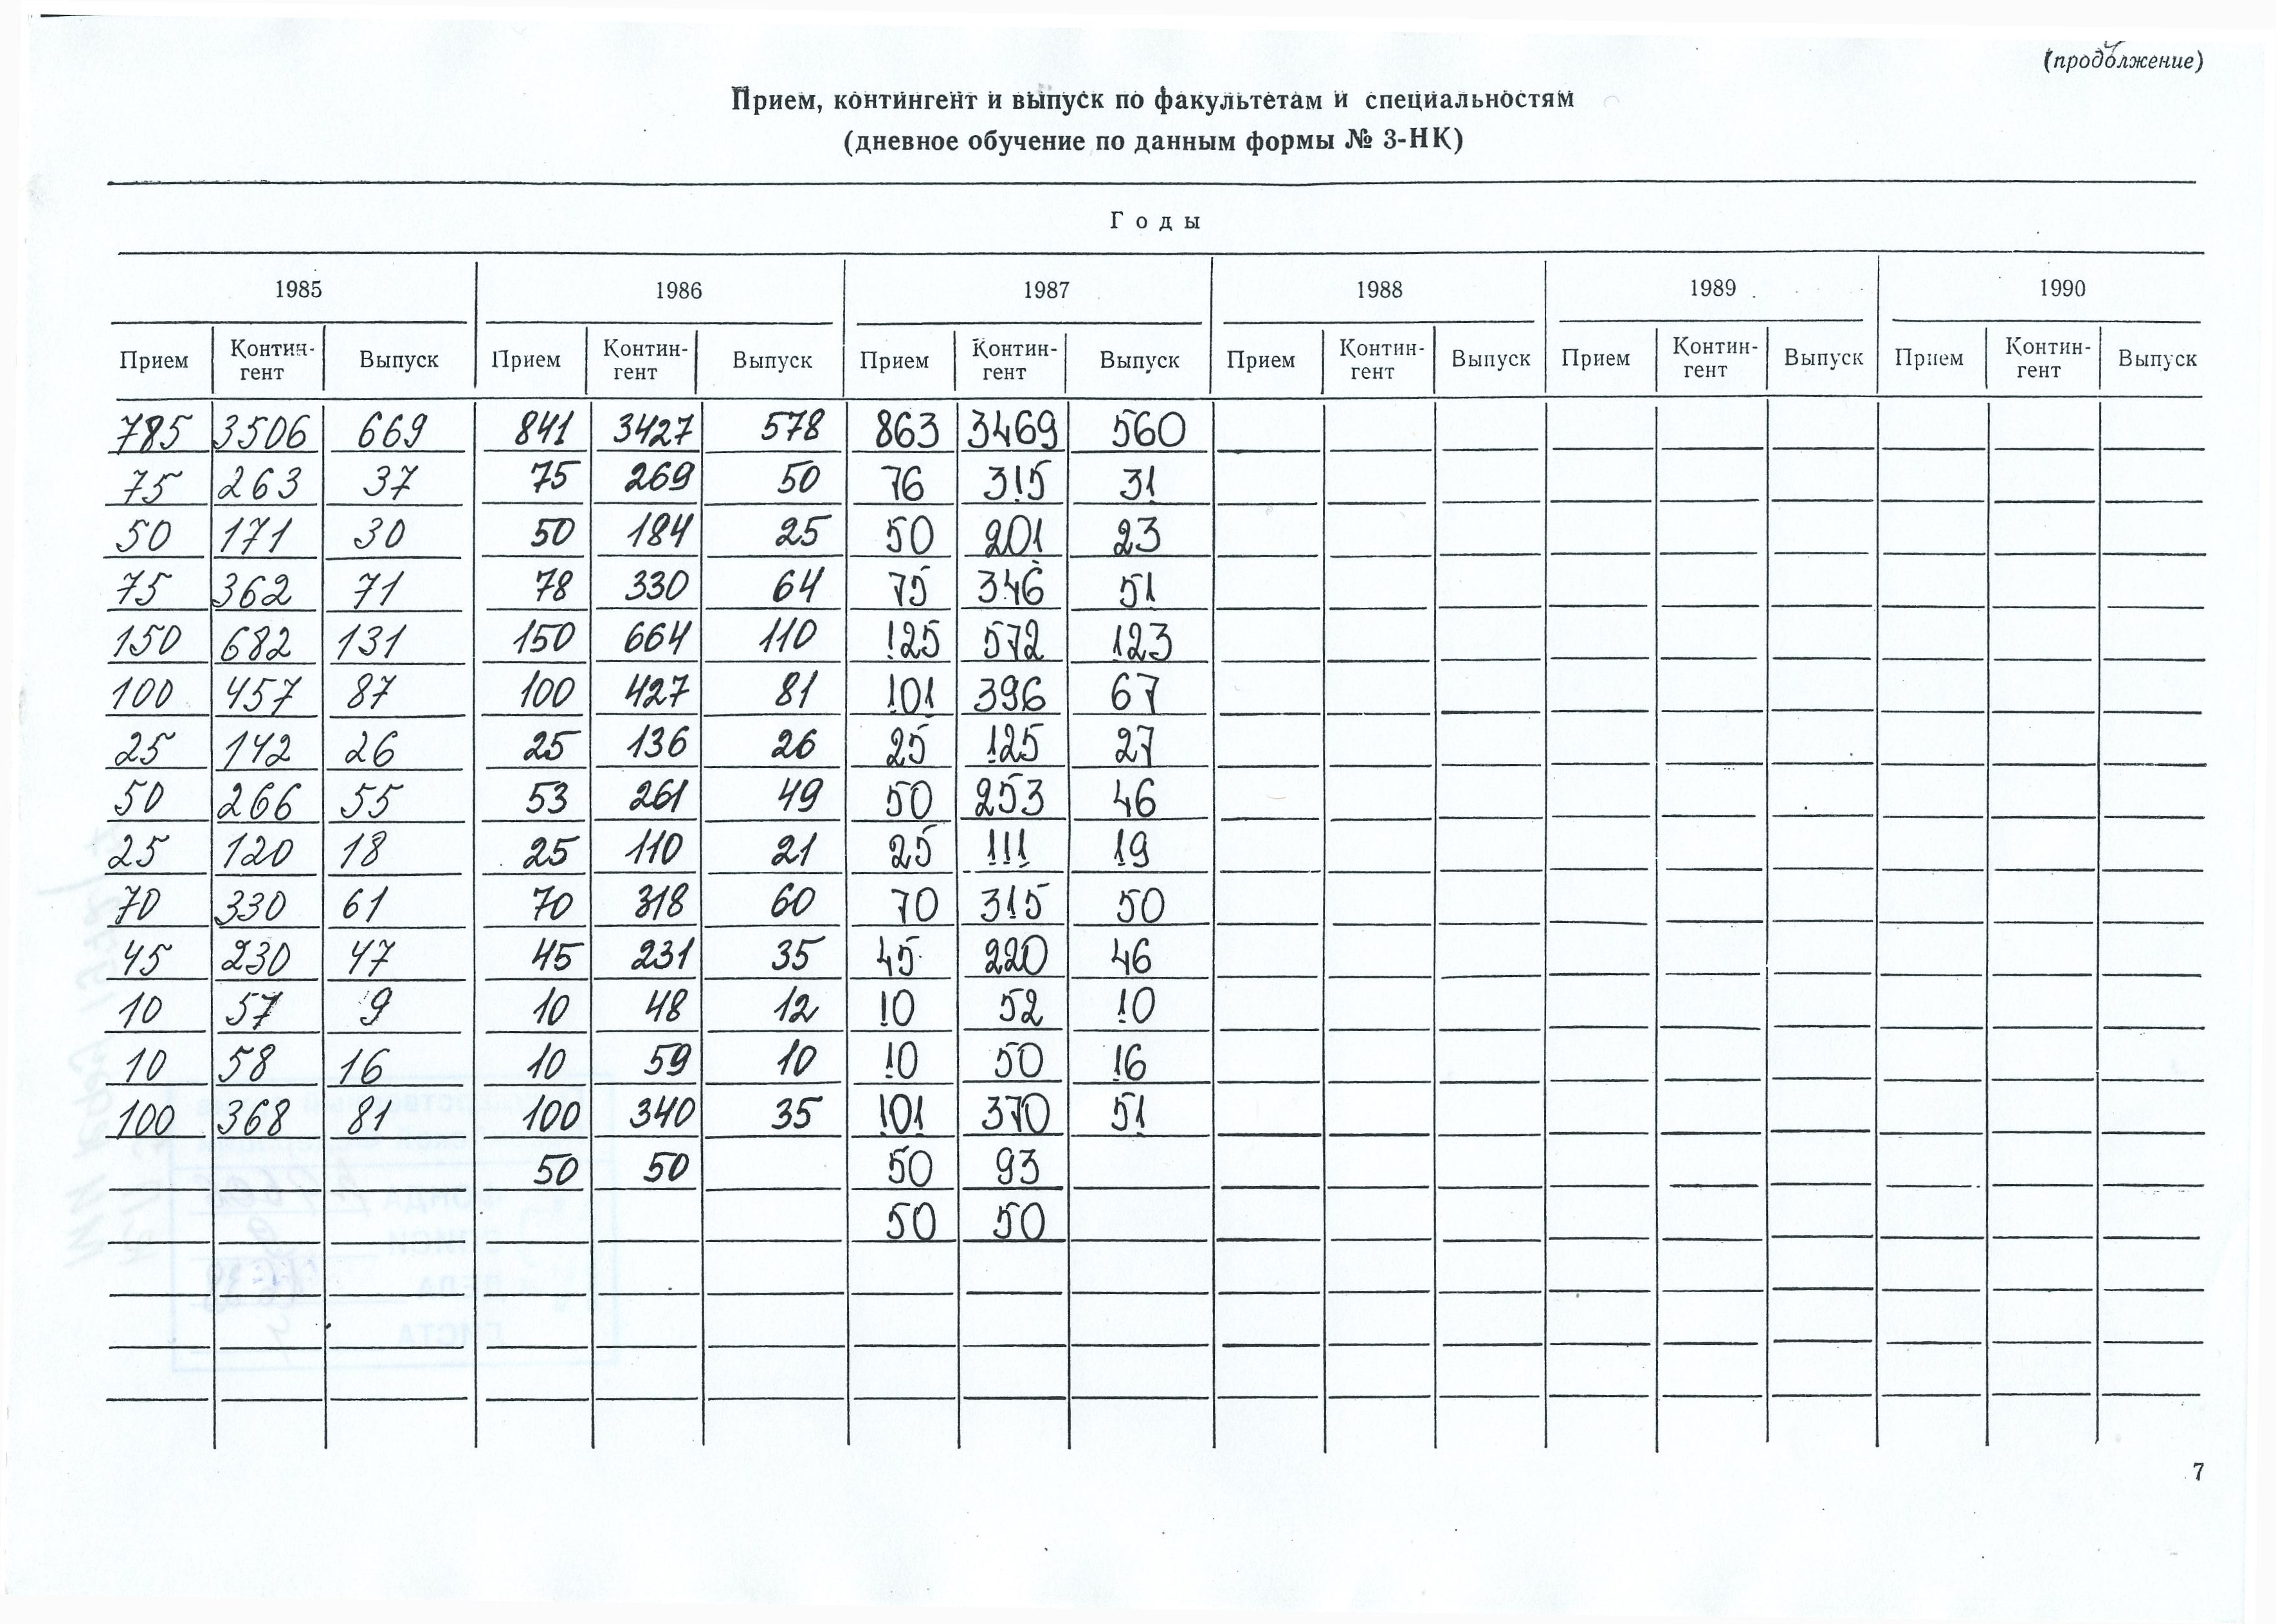 (продолжение)
Прием, контингент и выпуск по факультетам и специальностям
(дневное обучение по данным формы № 3-НК)
Годы
1985 1986 1987 1988 1989 1990
Прием Контин-гент Выпуск Прием Контин-гент Выпуск Прием Контин-гент Выпуск Прием Контин-гент Выпуск Прием Контин-гент Выпуск Прием Контин-гент Выпуск
785 3506 669 841 3427 578 863 3469 560
75 263 37 75 269 50 76 315 31
50 171 30 50 184 25 50 201 23
75 362 71 78 330 64 75 346 51
150 682 131 150 664 110 125 572 123
100 457 87 100 427 81 101 396 67
25 142 26 25 136 26 25 125 27
50 266 55 53 261 49 50 253 46
25 120 18 25 110 21 25 111 19
70 330 61 70 318 60 70 315 50
45 230 47 45 231 35 45 220 46
10 57 9 10 48 12 10 52 10
10 58 16 10 59 10 10 50 16
100 368 81 100 340 35 101 370 51
50 50 50 93
50 50
7